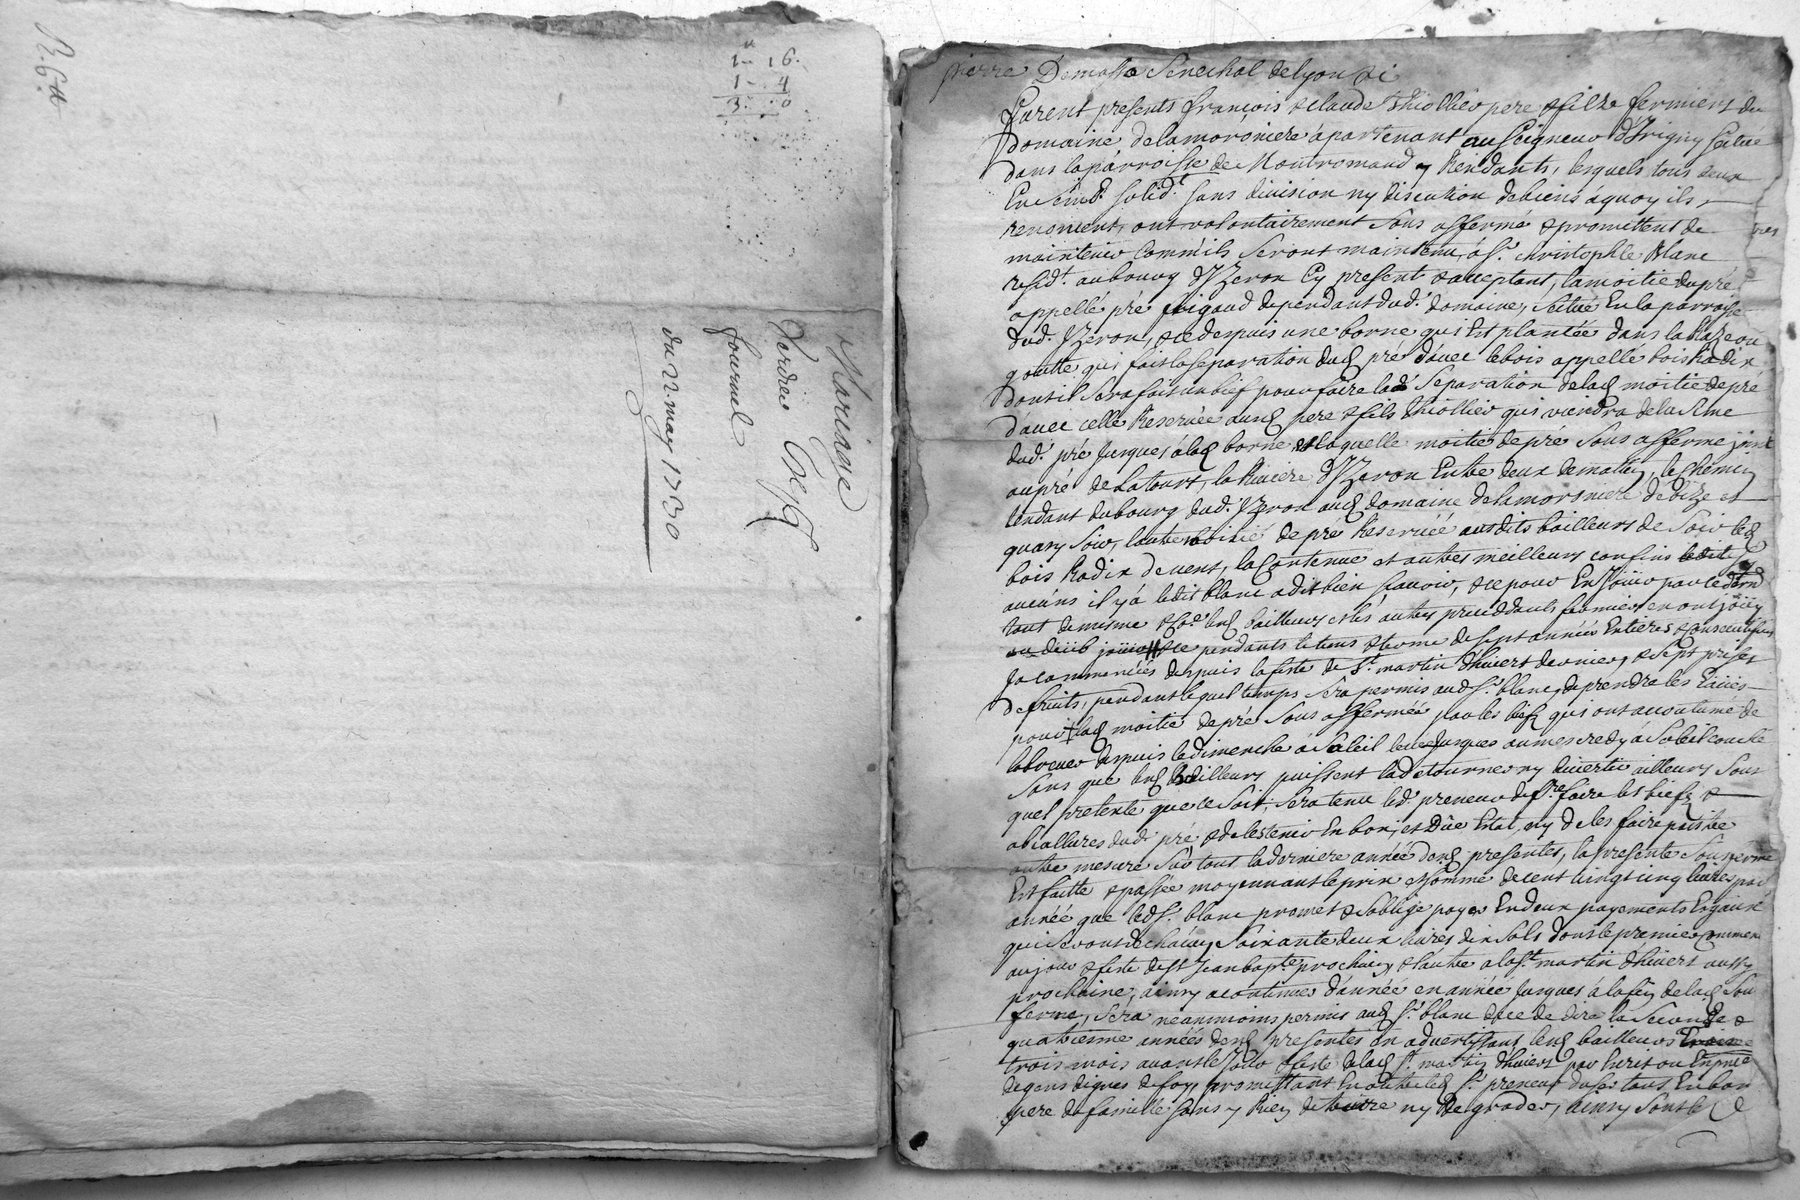 R. 6 tt
1 - 16.
1 - 4
3 . . 0
Mariage
Verdier
fournel
du 22. may 1730
pierre Demasso Senechal de lyon
furent presents françois & claude thiollier pere & fils fermiers du
domaine de la morsniere apartenant au Seigneur d'Irigny Scitue
dans la parroisse de Montromand y Rendants, lesquels tous deux
Ensembl. solid.t sans division ny discution de biens a quoy ils
renoncent, ont volontairement sous affermé & promettent de
maintenir comm'ils seront maintenu, à s.r christophle Blanc
resid.t au bourg d'Yzeron Cy present & acceptant, la moitie du pré
appellé pré rigaud dependant dud. domaine, Scitué En la parroisse
dud. Yzeron, & ce despuis une borne qui Est plantée dans la Raze ou
goutte qui fait la separation dud pré d'avec le bois appellé bois Radix
dont il sera fait un bief pour faire lad Separation de lad moitie de pré
d'avec celle Reservée ausd pere & fils thiollier qui viendra de la Cime
dud. pré Jusques à lad borne laquelle moitie de pré sous afferme joint
au pré de Latourt, la Riviere d'Yzeron Entre deux de matin, le Chemin
tendant du bourg dud. Yzeron aud domaine de la morsniere de bize et
quasy soir, l'autre moitié de pré Reservée ausdits bailleurs de soir led
bois Radix de vent, sa Contenue et autres meilleurs confins
aucuns il y a ledit blanc a dit bien scavoir, & ce pour En Jouir par led
tout de mesme & co.e lesd bailleurs et les autres precedants fermiers en ont jouy
& ce pendant le tems & terme de sept années Entieres & Consecutives
Ja commencées despuis la feste de S.t martin d'hivert dernier, & sept prises
de fruits, pendant lequel temps sera permis aud s.r blanc, de prendre les Eaües
pour lad moitie de pré sous affermée par les biefs qui ont accoutume de
labrever despuis le dimenche à Soleil levé Jusques au mescredy à Soleil couché
Sans que lesd bailleurs puissent la detourner ny divertir ailleurs sous
quel pretexte que ce soit, sera tenu led. preneur de faire les biefs &
abeallures dud. pré & de les tenir En bon et Düe Estat, ny de les faire paitre
outre mesure sur tout la derniere année desd presentes, la presente Sous ferme
Est faitte & passée moyennant le prix & somme de cent vingt cinq livres par
année que led s.r blanc promet & s'oblige payer En deux payements Egaux
qui seront de chacun soixante deux livres dix sols dont le premier
au jour & feste de st Jean bapt.e prochain & l'autre a la s.t martin d'hivert aussy
prochaine, ainsy a continuer d'année en année Jusques à la fin de lad sou
ferme, sera neanmoins permis aud s.r blanc de se dire la seconde &
quatrieme années desd presentes en advertissant lesd bailleurs
trois mois avant le jour & feste de lad s.t martin d'hivert par Ecrit ou En presence
de gens dignes de foy, promettant En outre led s.r preneur d'user tout En bon
pere de famille sans y Rien detruire ny de grader, ainsy sont